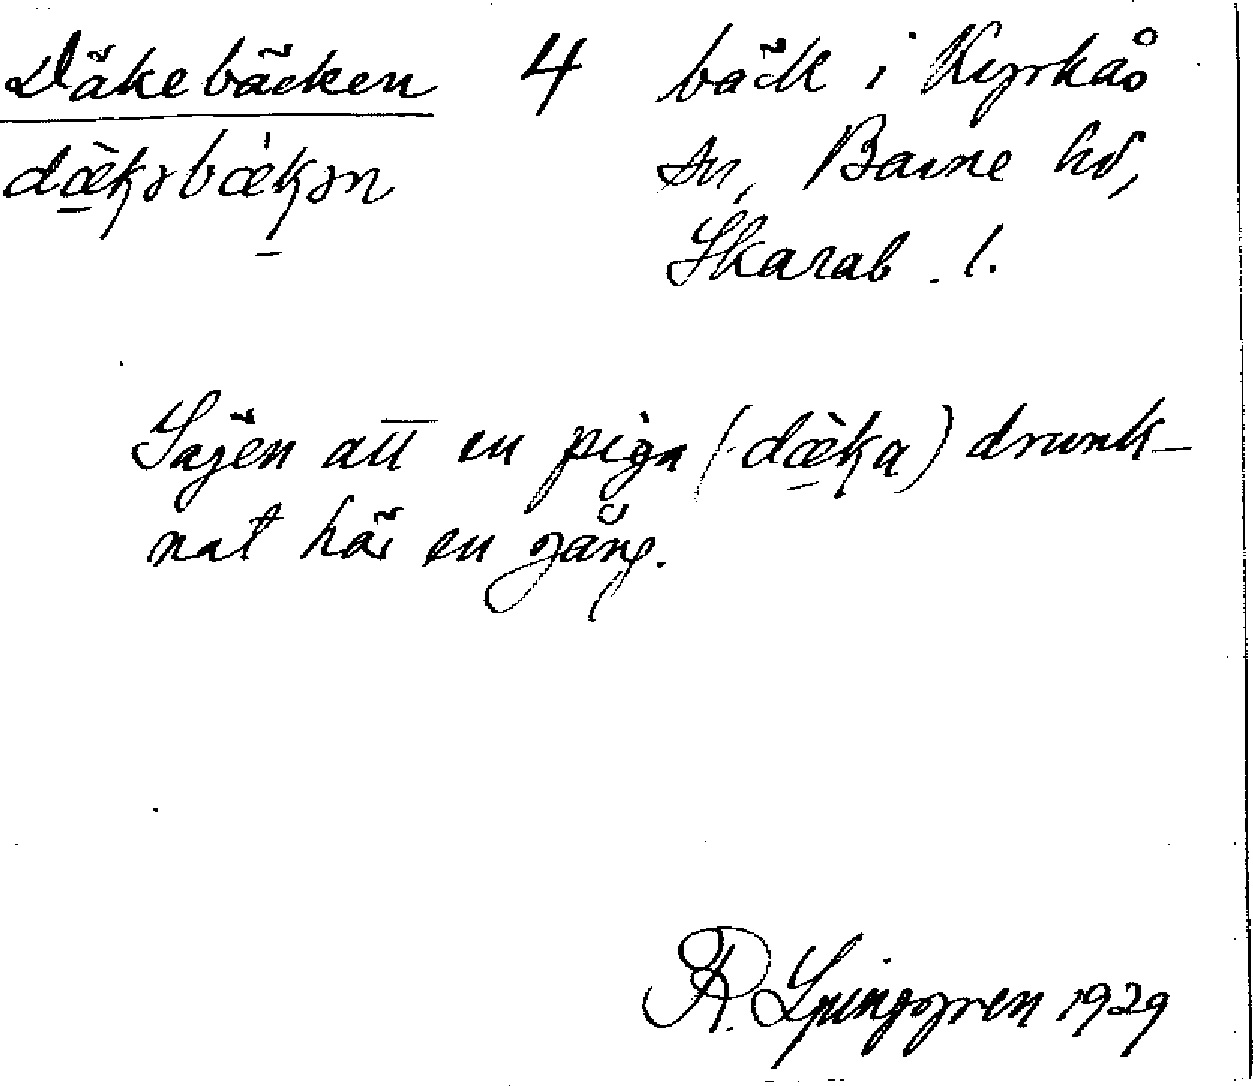 Däkebäcken 4 bäck i Kyrkås
dæ̀kəbæ̀kən sn, Barne hd,
Skarab. l.
Sägen att en piga (dæ̀ka) drunk-
nat här en gång.
R. Ljunggren 1929